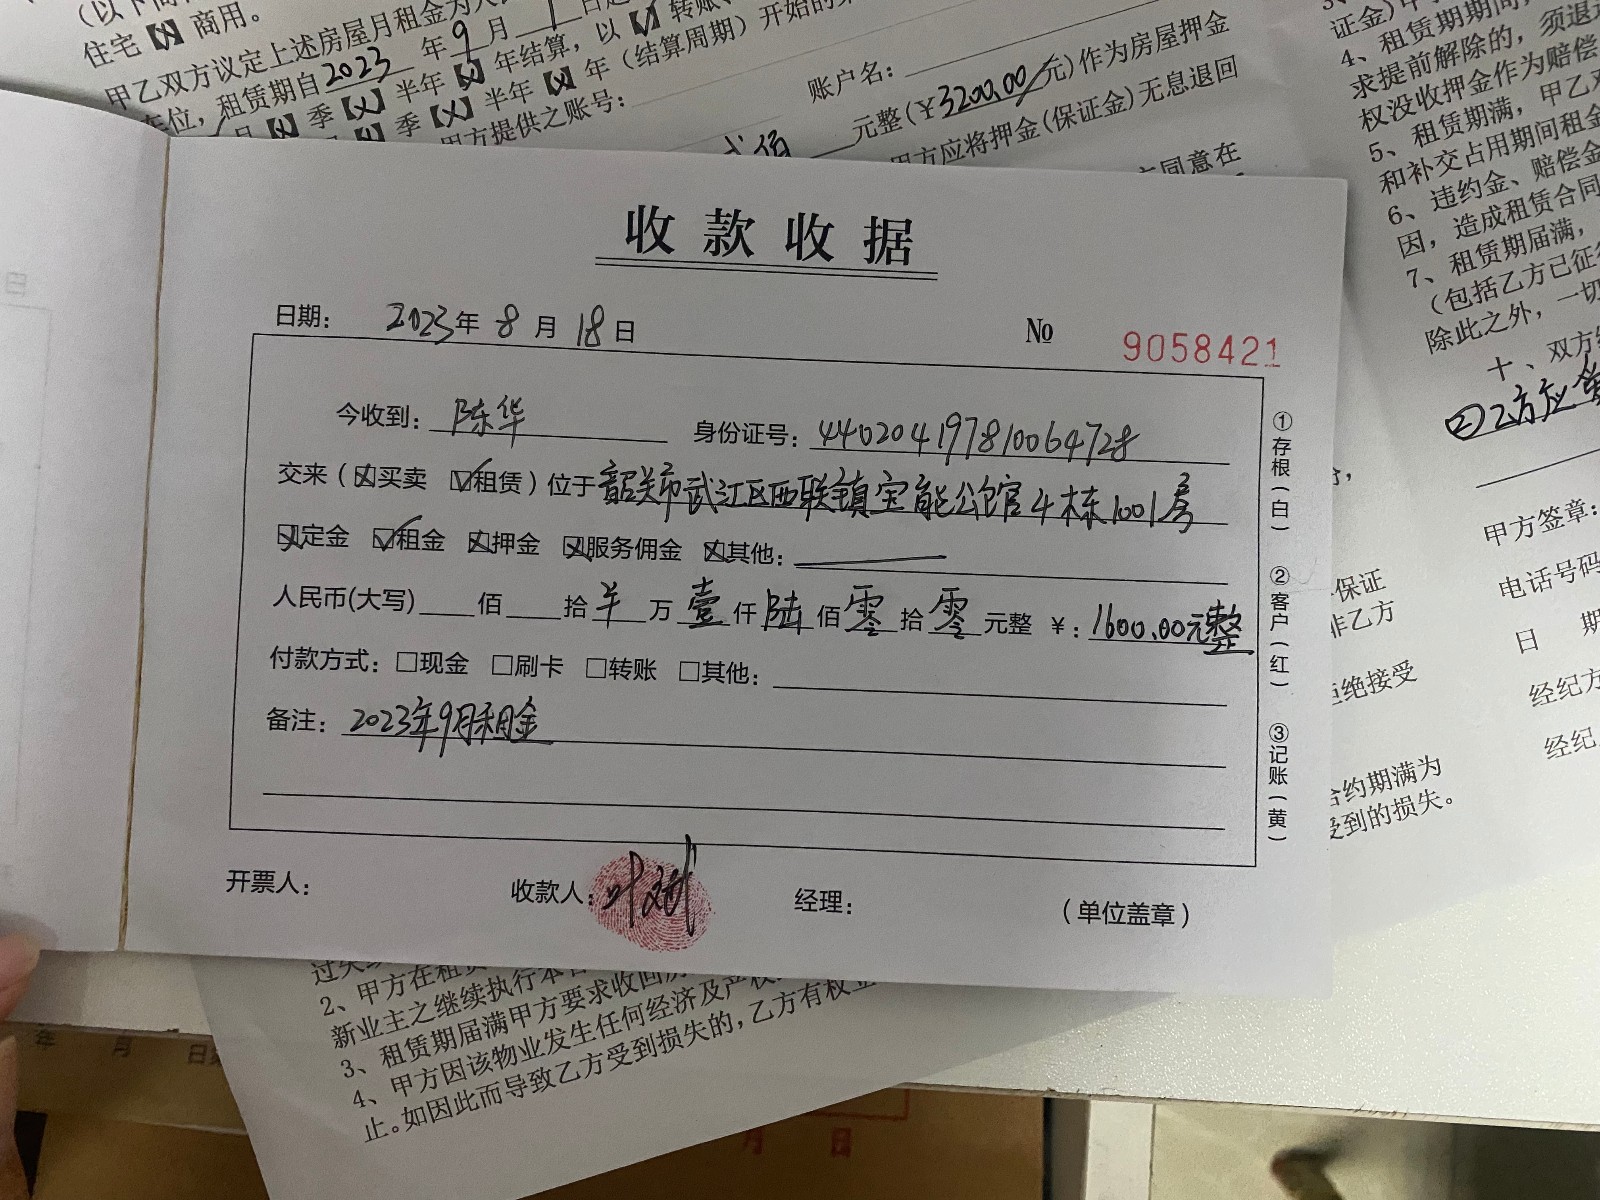 住宅【×】商用。
甲乙双方议定上述房屋月租金为人
租赁期自2023年9月1日
季【×】半年【×】年结算，以【√】转账、
季【×】半年【×】年（结算周期）开始的
甲方提供之账号：
账户名：
元整（¥3200.00元）作为房屋押金
甲方应将押金（保证金）无息退回
同意在
收款收据
日期： 2023年 8月 18日
№ 9058421
今收到：陈华 身份证号：440204197810064728
交来（☒买卖 ☑租赁）位于韶关市武江区西联镇宝能公馆4栋1001房
☒定金 ☑租金 ☒押金 ☒服务佣金 ☒其他：
人民币(大写) 佰 拾 半 万 壹 仟 陆 佰 零 拾 零 元整 ¥：1600.00元整
付款方式：□现金 □刷卡 □转账 □其他：
备注：2023年9月租金
开票人： 收款人： 经理： （单位盖章）
①存根（白） ②客户（红） ③记账（黄）
2、甲方在租
新业主之继续执行本
3、租赁期届满甲方要求收回
4、甲方因该物业发生任何经济及产权
止。如因此而导致乙方受到损失的，乙方有权
证金）
4、租赁期期间，
求提前解除的，须退还
权没收押金作为赔偿
5、租赁期满，甲乙
和补交占用期间租金
6、违约金、赔偿金
因，造成租赁合同
7、租赁期届满，
（包括乙方已征
除此之外，一切
十、双方
②乙方应
甲方签章：
电话号码
日 期
经纪方
经纪
保证
非乙方
拒绝接受
合约期满为
受到的损失。
年 月 日
月 日